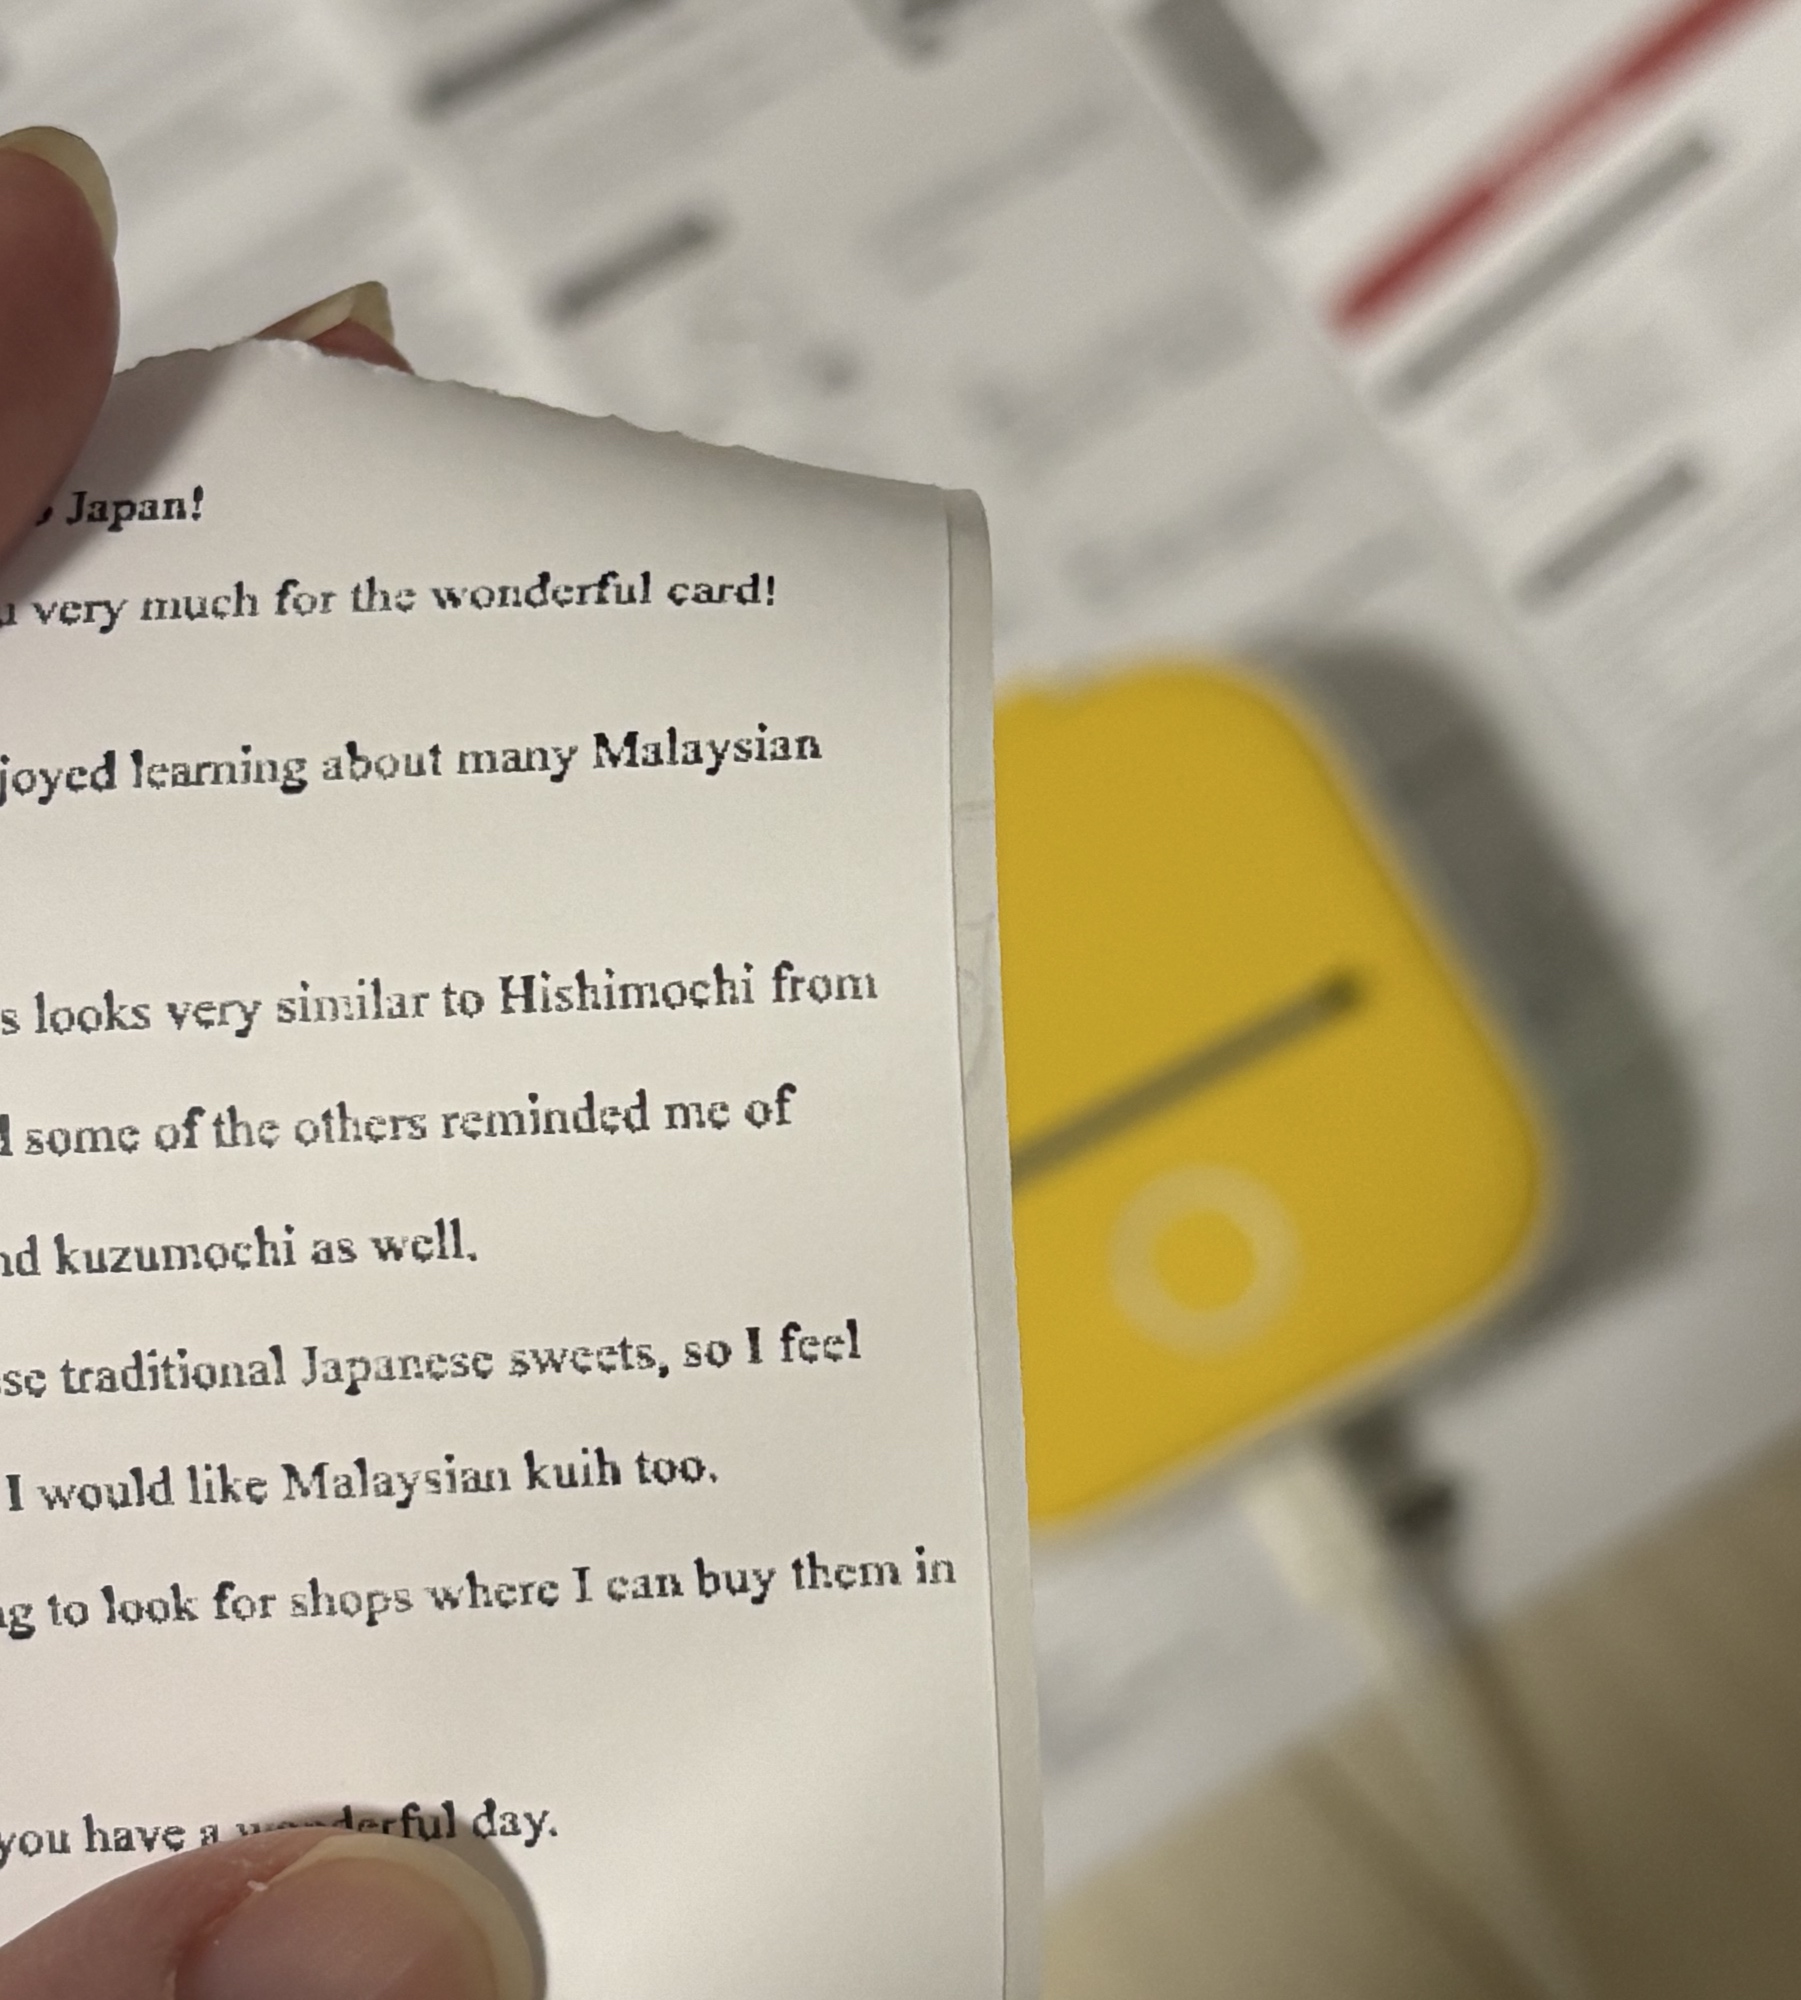 Japan!
very much for the wonderful card!
joyed learning about many Malaysian
s looks very similar to Hishimochi from
some of the others reminded me of
nd kuzumochi as well.
se traditional Japanese sweets, so I feel
I would like Malaysian kuih too.
g to look for shops where I can buy them in
you have a wonderful day.